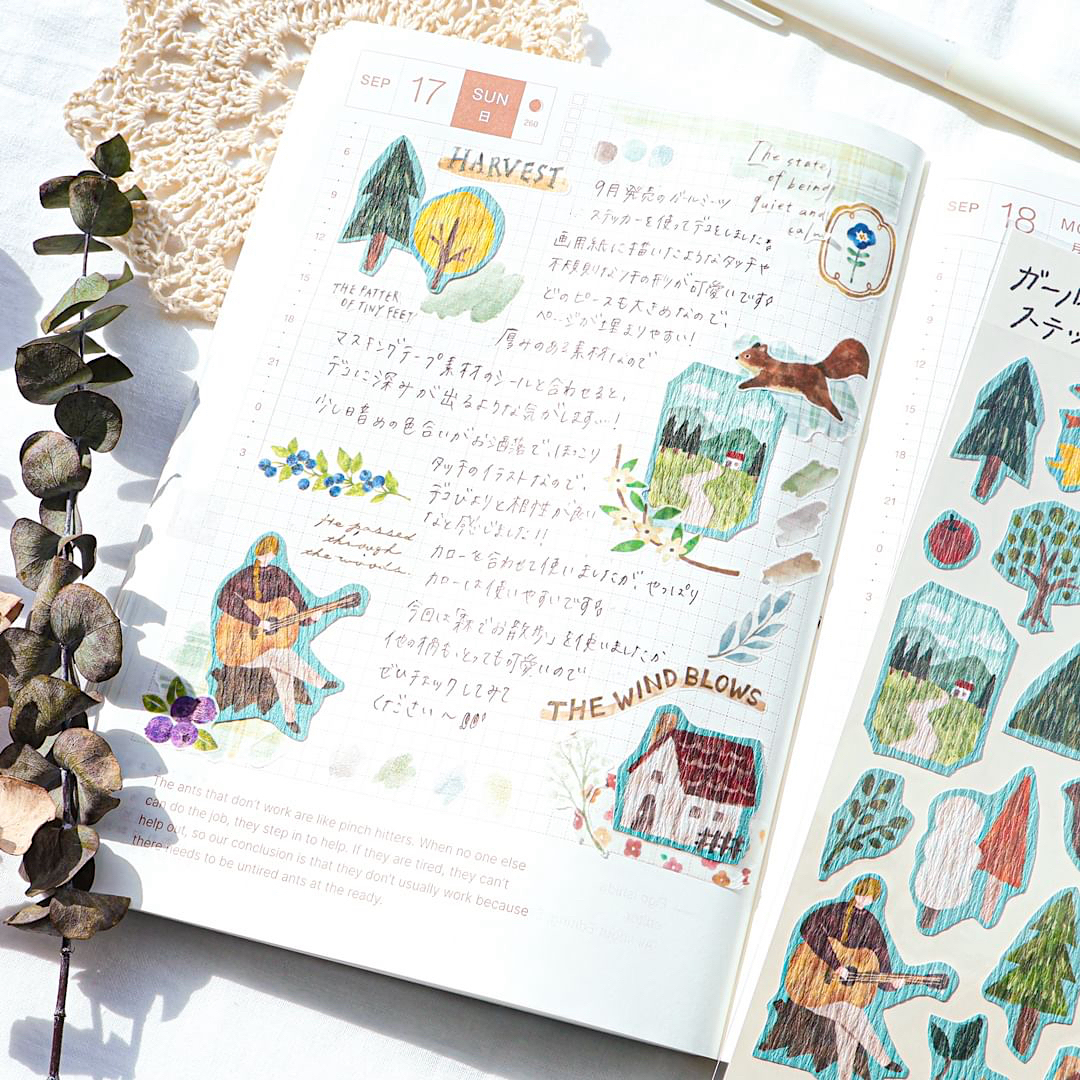 SEP 17 SUN
日
260
6
9
12
15
18
21
0
3
HARVEST
The state,
of being
quiet and
calm
THE PATTER
OF TINY FEET
9月発売のガールミーツ
ステッカーを使ってデコをしました
画用紙に描いたようなタッチや
不規則なフチの形が可愛いです
どのピースも大きめなので、
ページが埋まりやすい!
厚みのある素材なので
マスキングテープ素材のシールと合わせると、
デコに深みが出るような気がします…!
少し昔めの色合いがお洒落で、ほっこり
タッチのイラストなので、
デコびよりと相性が良い
なと感じました!!
カローを合わせて使いましたが、やっぱり
カローは使いやすいです
今回は「森でお散歩」を使いましたが
他の柄も、とっても可愛いので
ぜひチェックしてみて
ください〜
He passed
through
the woods.
THE WIND BLOWS
The ants that don't work are like pinch hitters. When no one else
can do the job, they step in to help. If they are tired, they can't
help out, so our conclusion is that they don't usually work because
there needs to be untired ants at the ready.
SEP 18 MO
月
6
9
12
15
18
21
0
3
ガール
ステッ